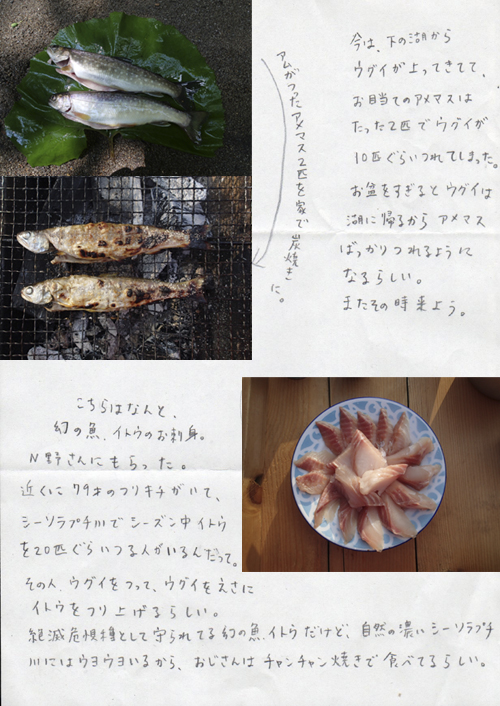 今は、下の湖から
ウグイが上ってきてて、
お目当てのアメマスは
たった2匹でウグイが
10匹ぐらいつれてしまった。
お盆をすぎるとウグイは
湖に帰るからアメマス
ばっかりつれるように
なるらしい。
またその時来よう。
アムがつったアメマス2匹を家で炭焼きに。
こちらはなんと、
幻の魚、イトウのお刺身。
N野さんにもらった。
近くに79才のツリキチがいて、
シーソラプチ川でシーズン中イトウ
を20匹ぐらいつる人がいるんだって。
その人、ウグイをつって、ウグイをえさに
イトウをつり上げるらしい。
絶滅危惧種として守られてる幻の魚イトウだけど、自然の濃いシーソラプチ
川にはウヨウヨいるから、おじさんはチャンチャン焼きで食べてるらしい。